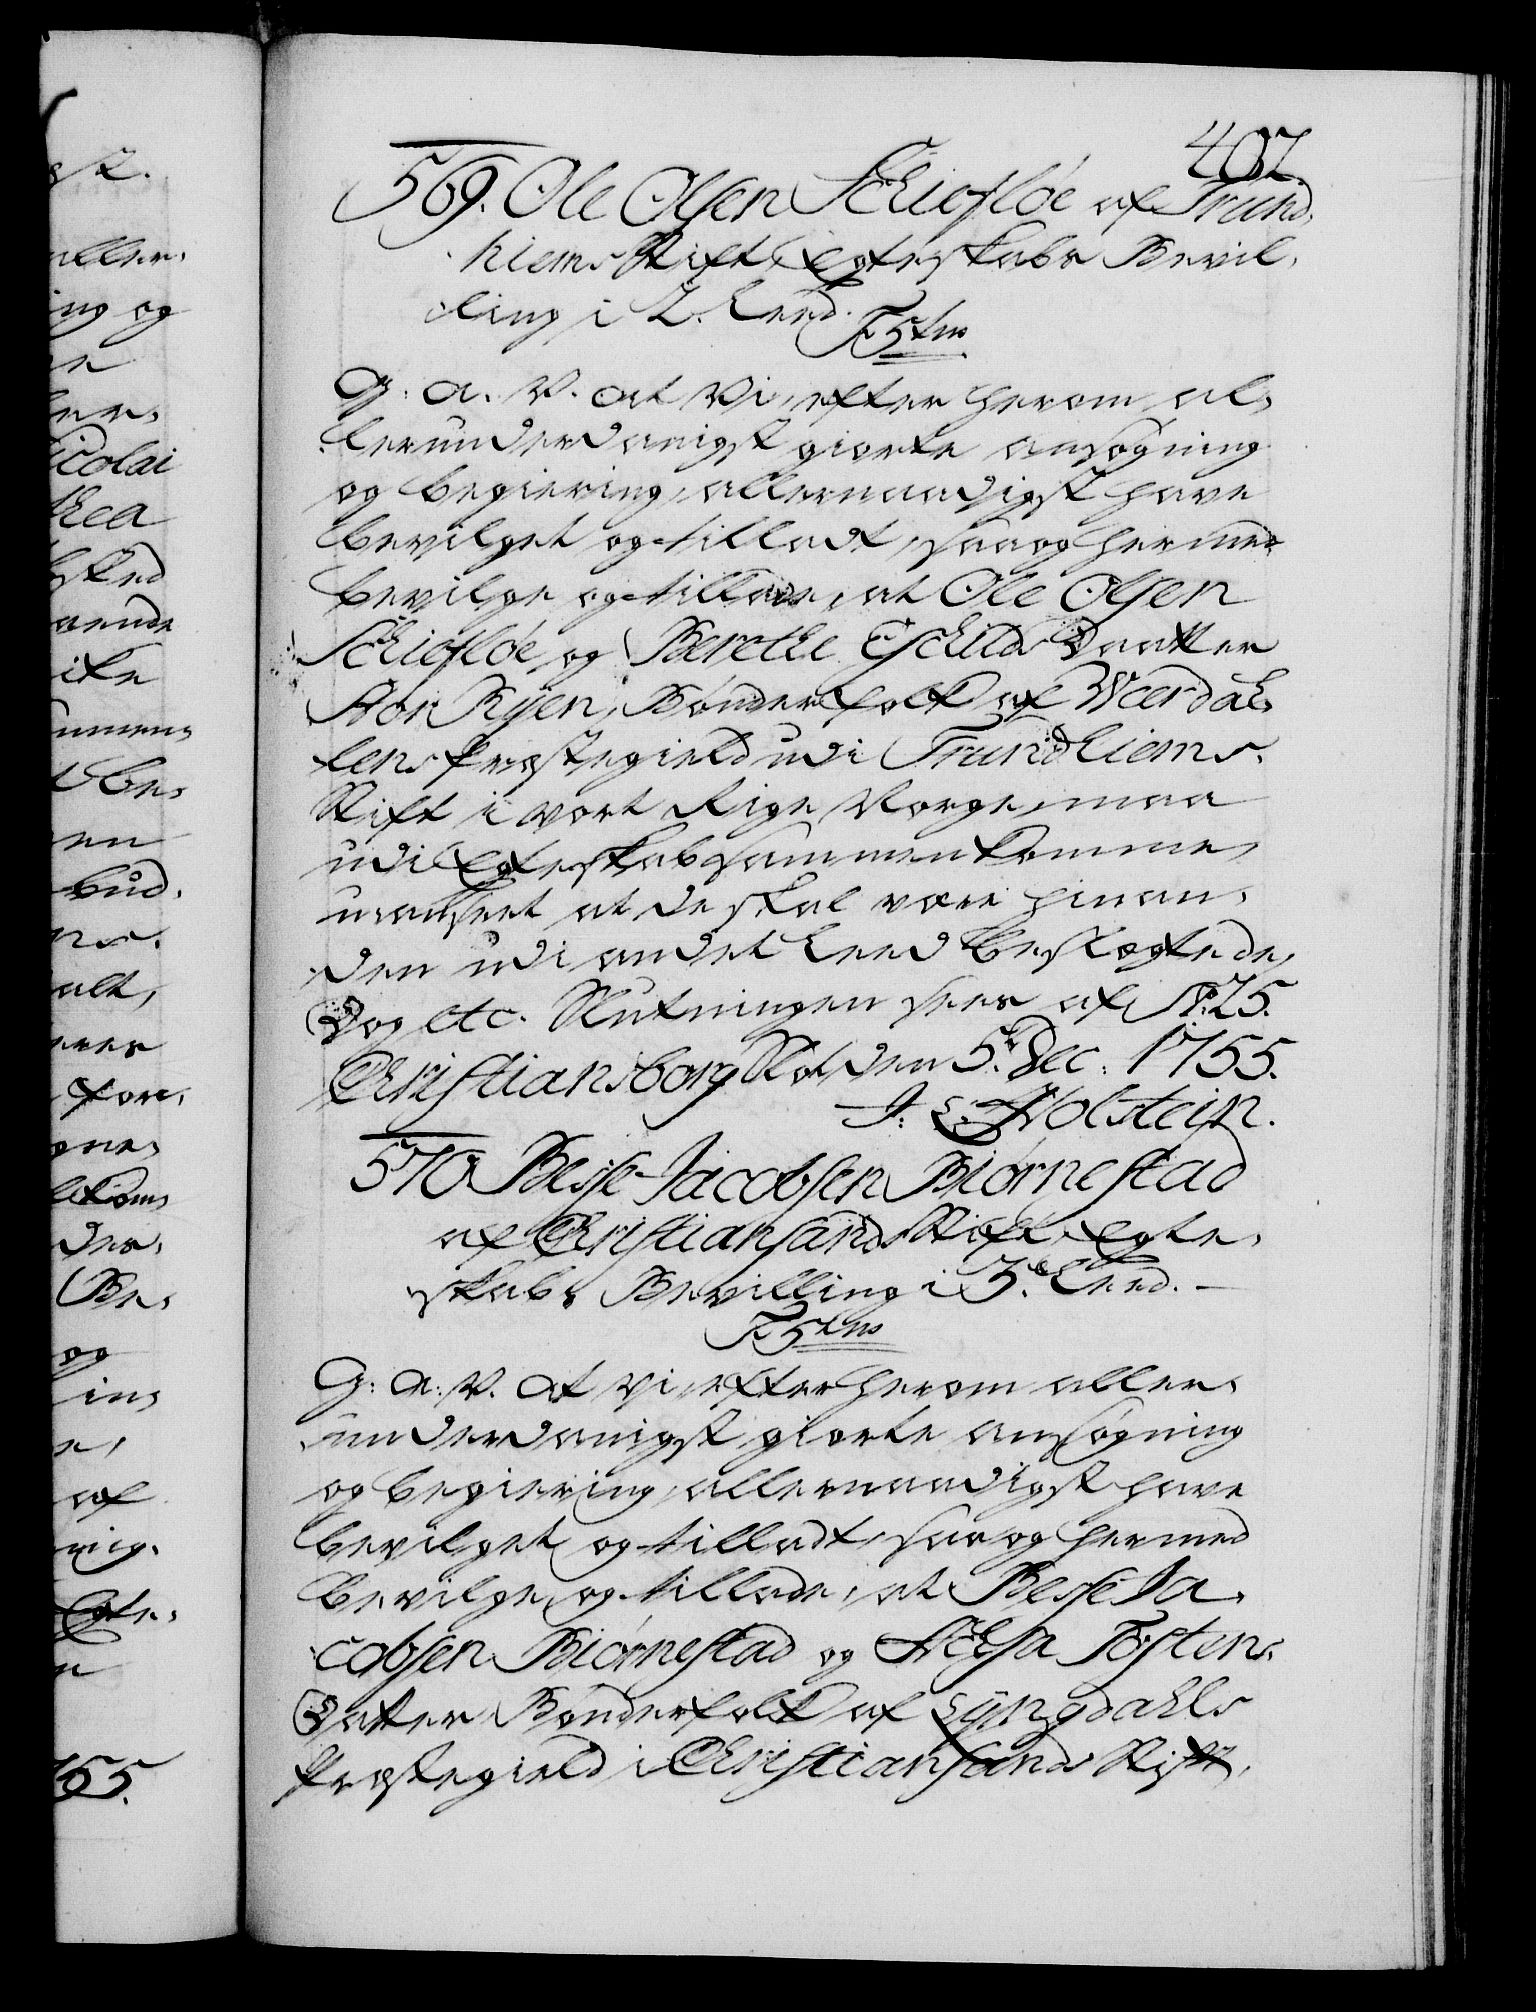 407
569. Ole Olsen Schiefløe af Trund,
hiems Stift Egteskabs Bevil,
ling i 2. Leed.
F 5tms
G. A. V. at Vi, efter herom al,
lerunderdanigst giorte ansøgning
og begiering, allernaadigst have
bevilget og tilladt, saa og hermed
bevilge og tillade, at Ole Olsen
Schiefløe og Berethe Eskilds Daatter
Stor Ryen, Bønderfolk af Værdah,
lens Præstegield udi Trundhiems
Stift i vort Rige Norge, maa
udi Egteskab sammenkomme,
uanseet at de skal være hinan,
den udi andet Leed beslægtede,
Dog etc. Slutningen sees af N: 25.
Christiansborg Slot den 5t Dec: 1755.
J. L. Holstein.
570 Besse Jacobsen Biørnestad
af Christiansands Stift, Egte,
skabs Bevilling i 3e Leed. –
F 5tms
G: A: V. at Vi, efter herom aller,
underdanigst giorte ansøgning
og begiering, allernaadigst have
bevilget og tilladt, saa og hermed
bevilge og tillade, at Besse Ja,
cobsen Biørnestad og Aasa Tostens
Datter Bønderfolk af Lyngdahls
Præstegield i Christiansands Stift,